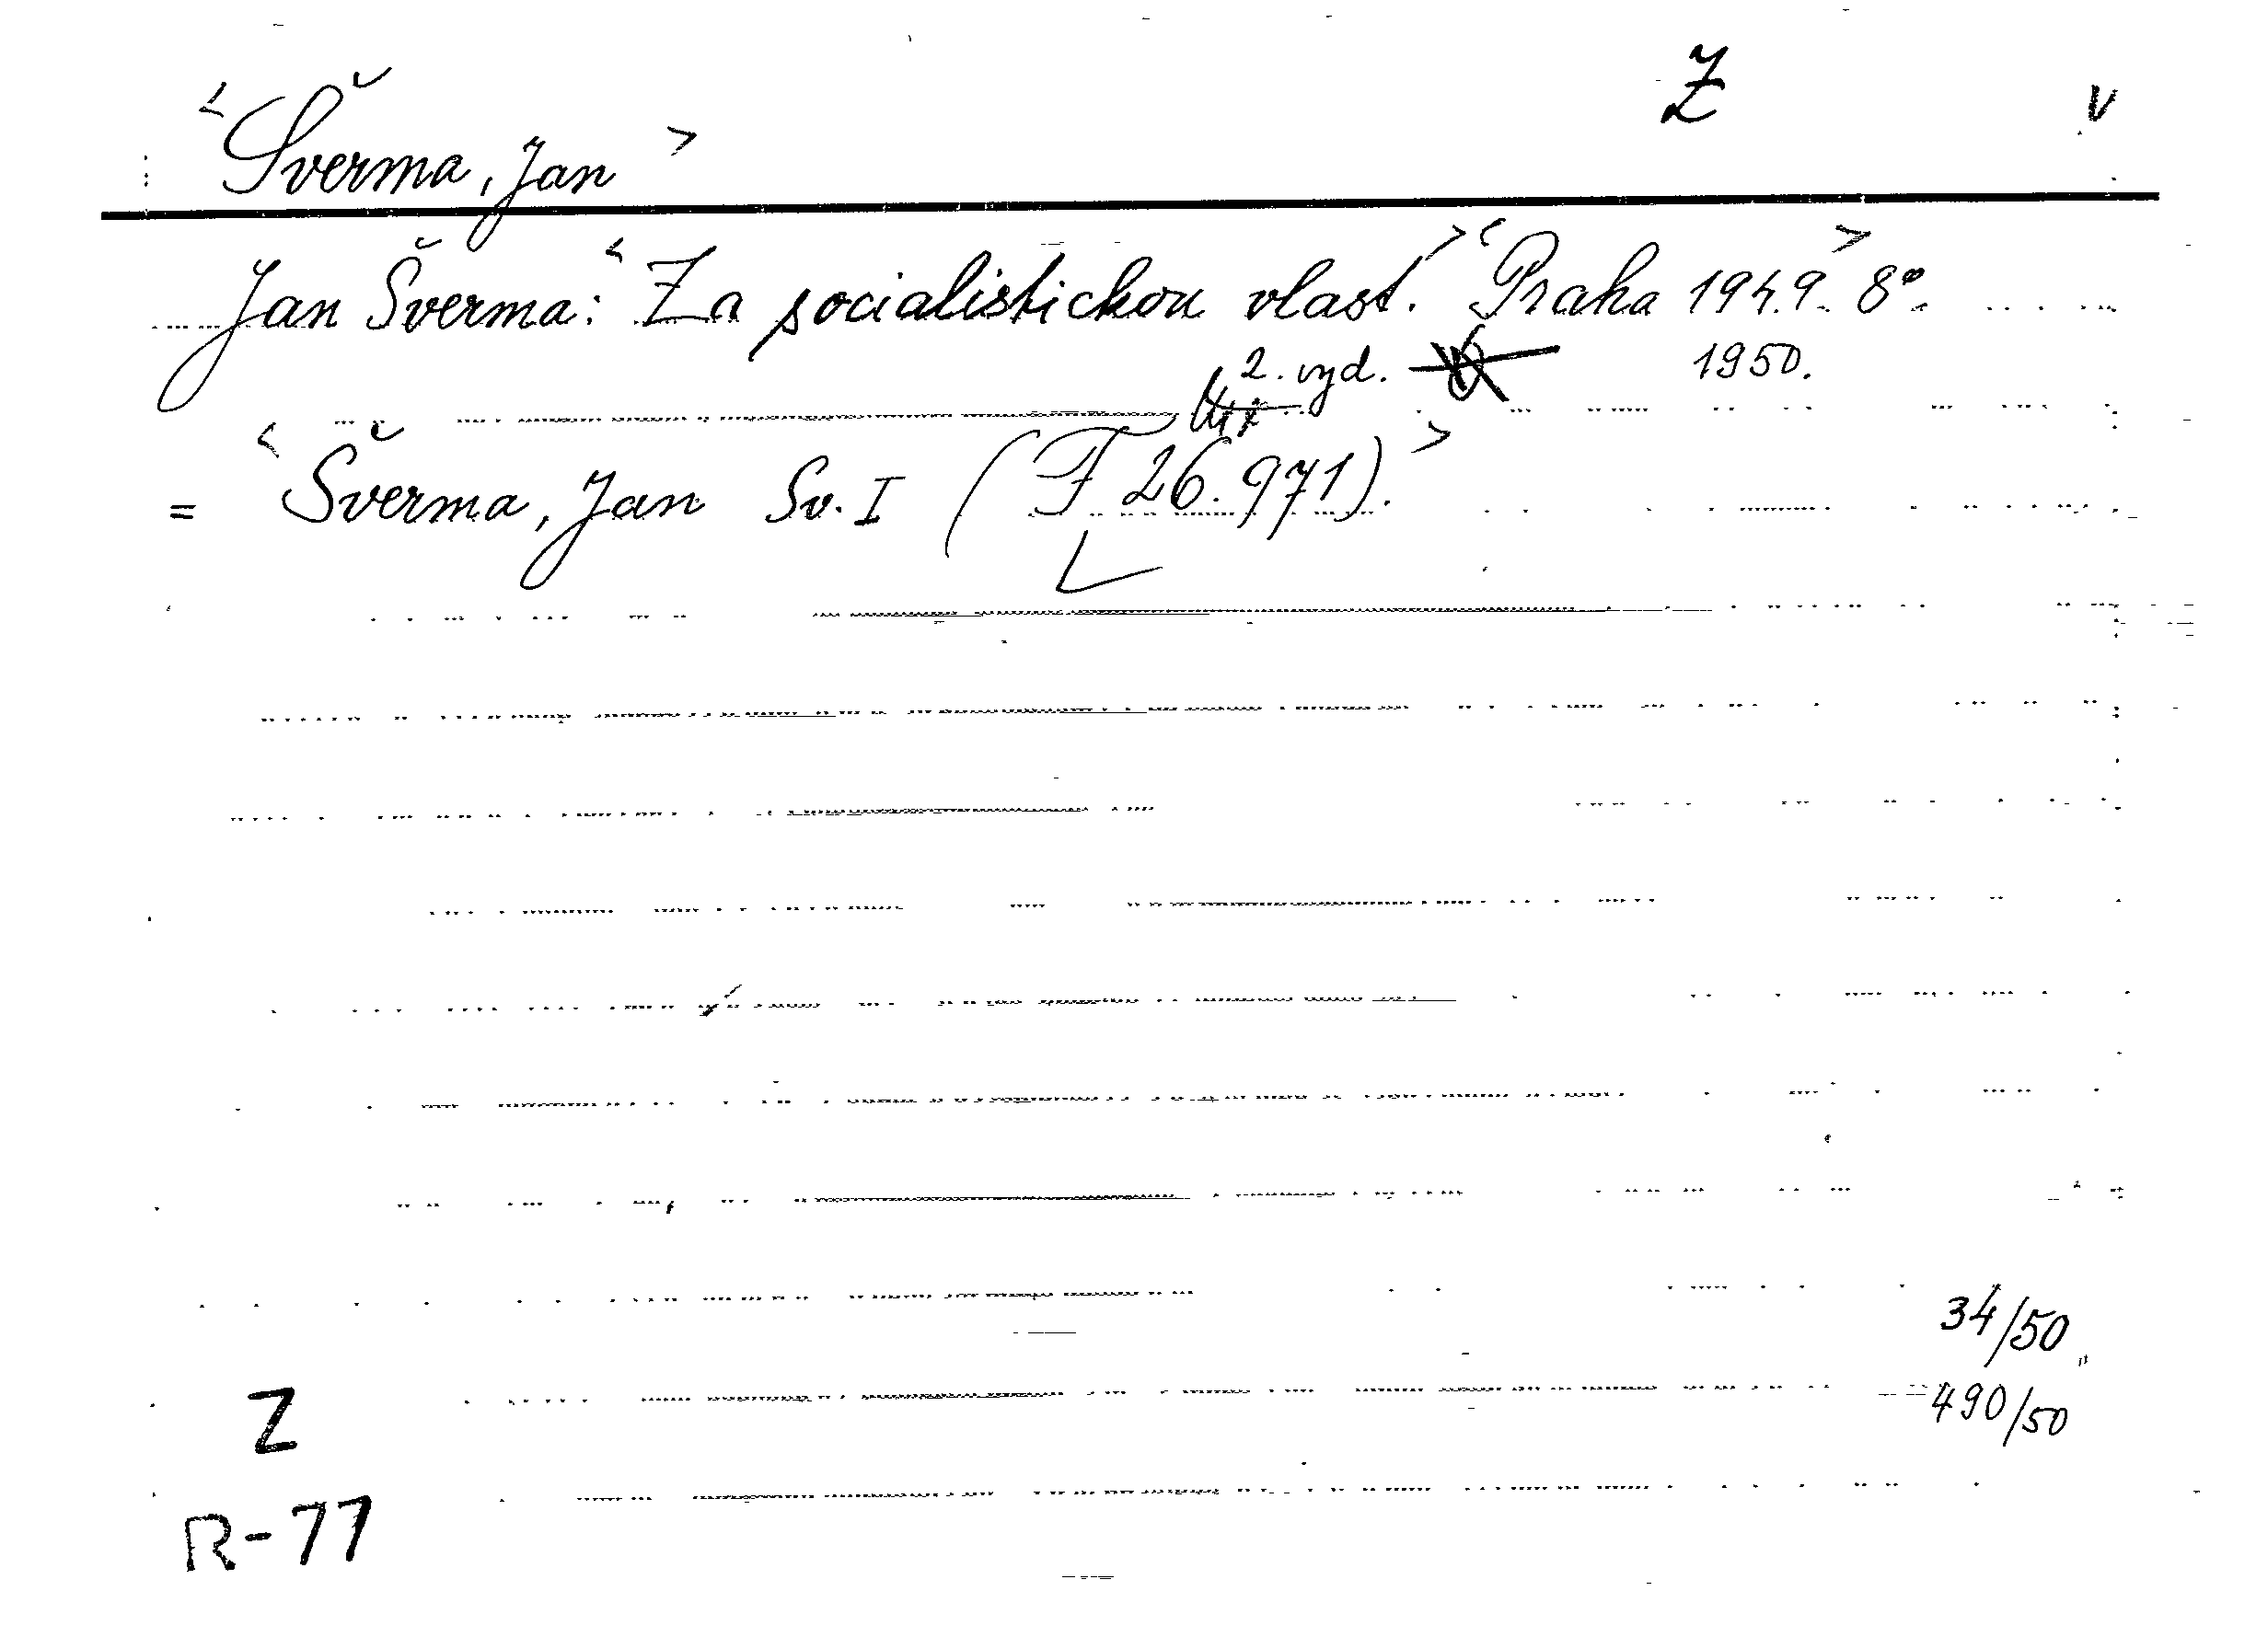 Z v
<Šverma, Jan>
Jan Šverma: <Za socialistickou vlast.> <Praha 1949.> 8°.
2. vyd. 1950.
= <Šverma, Jan Sv. I (F 26.971).>
34/50
490/50
Z
R-77